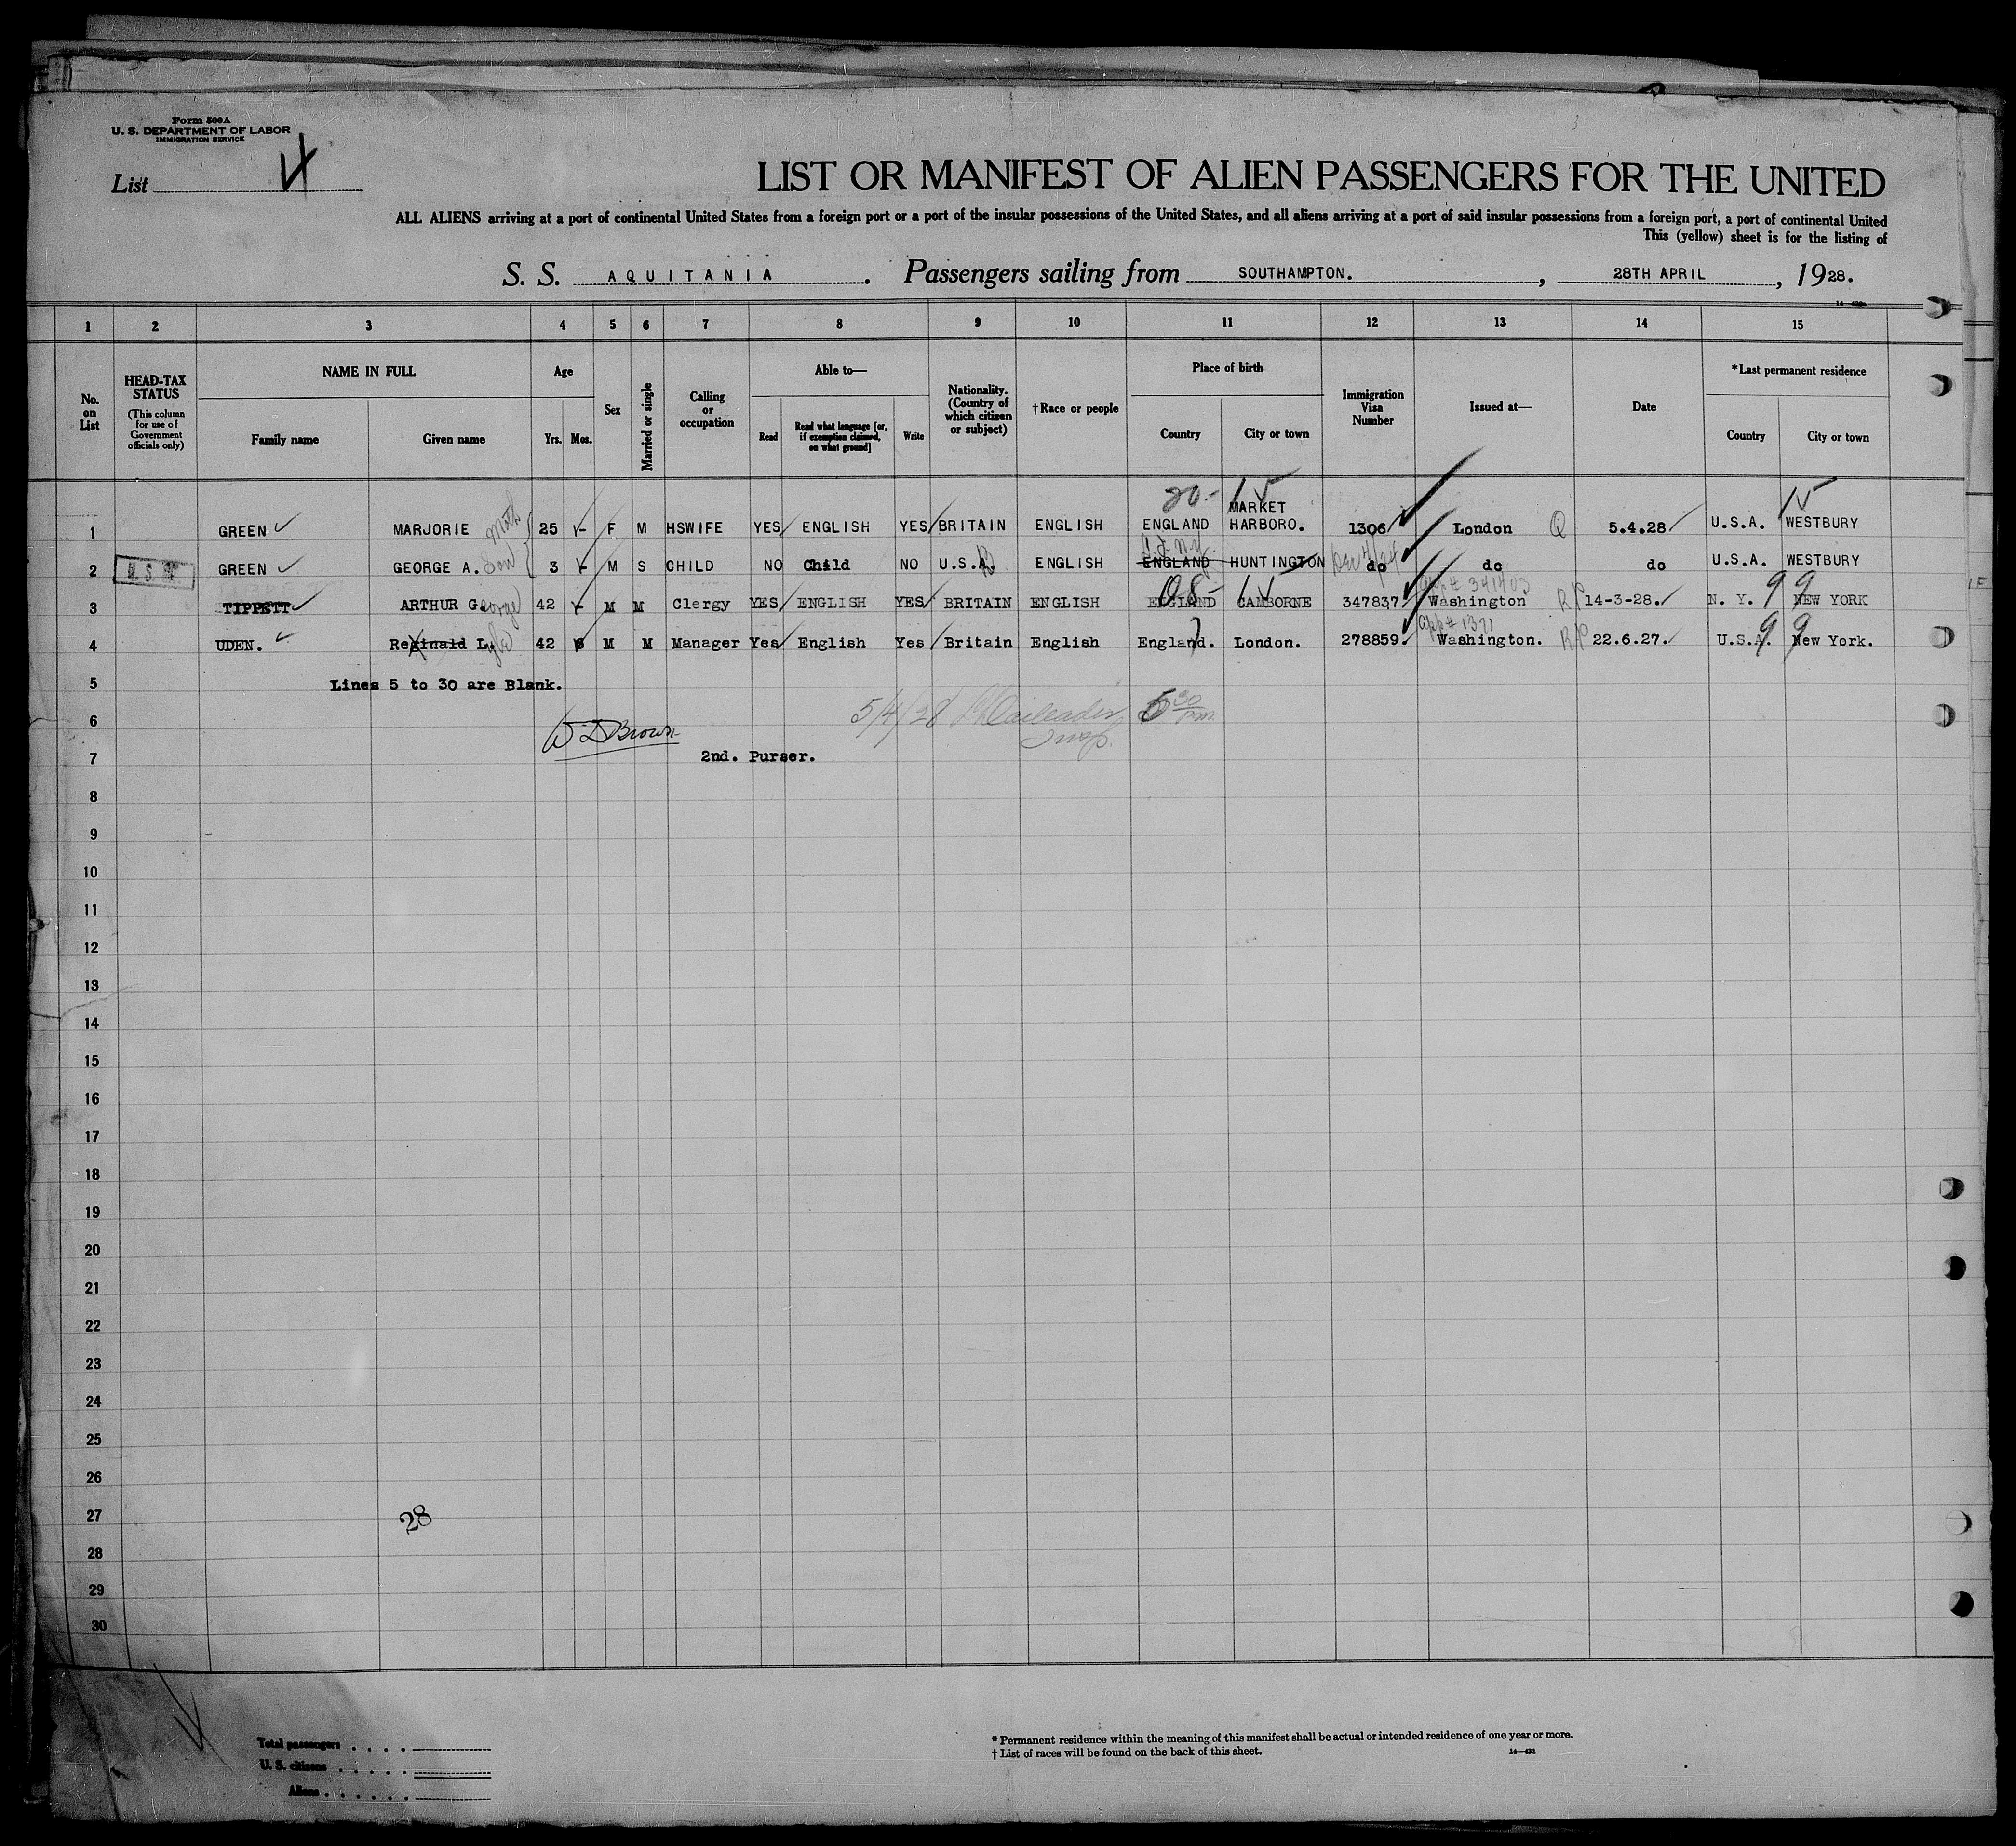 Form 500A
U. S. DEPARTMENT OF LABOR
IMMIGRATION SERVICE
List 4
LIST OR MANIFEST OF ALIEN PASSENGERS FOR THE UNITED
ALL ALIENS arriving at a port of continental United States from a foreign port or a port of the insular possessions of the United States, and all aliens arriving at a port of said insular possessions from a foreign port, a port of continental United
This (yellow) sheet is for the listing of
S. S. AQUITANIA. Passengers sailing from SOUTHAMPTON., 28TH APRIL, 1928.
1 2 3 4 5 6 7 8 9 10 11 12 13 14 15
No. on List
HEAD-TAX STATUS
(This column for use of Government officials only)
NAME IN FULL
Family name
Given name
Age
Yrs. Mos.
Sex
Married or single
Calling or occupation
Able to—
Read
Read what language [or, if exemption claimed, on what ground]
Write
Nationality. (Country of which citizen or subject)
†Race or people
Place of birth
Country
City or town
Immigration Visa Number
Issued at—
Date
*Last permanent residence
Country
City or town
20-
1 GREEN MARJORIE Moth 25 - F M HSWIFE YES ENGLISH YES BRITAIN ENGLISH ENGLAND MARKET HARBORO. 1306 London Q 5.4.28 U.S.A. WESTBURY
2 GREEN GEORGE A. Son 3 - M S CHILD NO Child NO U.S.A. ENGLISH ENGLAND HUNTINGTON do do do U.S.A. WESTBURY
08-
3 TIPPETT ARTHUR G. 42 - M M Clergy YES ENGLISH YES BRITAIN ENGLISH ENGLAND CAMBORNE 347837 Washington R/P 14-3-28. N. Y. 9 9 NEW YORK
4 UDEN. Reginald L. 42 M M Manager Yes English Yes Britain English England. London. 278859. Washington. R/P 22.6.27. U.S.A. 9 9 New York.
5 Lines 5 to 30 are Blank.
6 5/4/28 Insp. pm
W L Brown
7 2nd. Purser.
8
9
10
11
12
13
14
15
16
17
18
19
20
21
22
23
24
25
26
27 28
28
29
30
Total passengers . . . .
U. S. citizens . . . . .
Aliens . . . . . .
* Permanent residence within the meaning of this manifest shall be actual or intended residence of one year or more.
† List of races will be found on the back of this sheet.
14—431